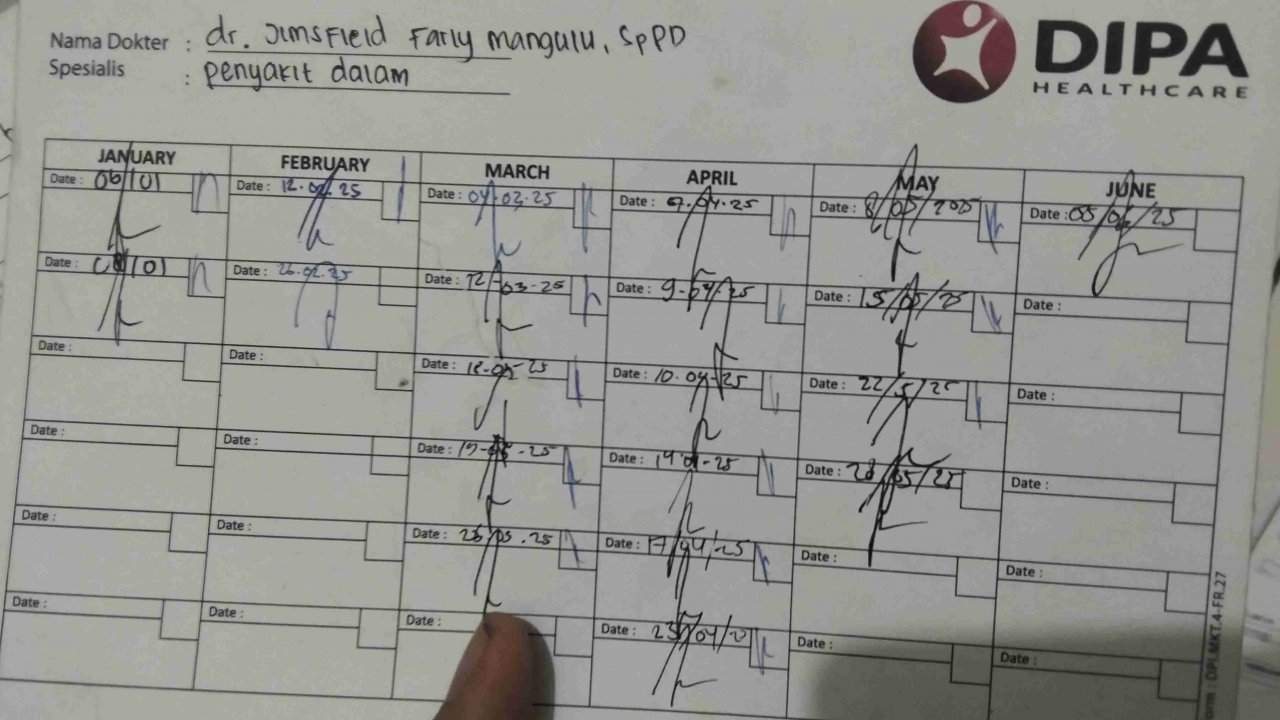 Nama Dokter : dr. Jimsfield Farly Mangulu, SpPD
Spesialis : penyakit dalam
DIPA
HEALTHCARE
JANUARY FEBRUARY MARCH APRIL MAY JUNE
Date : 06/01 Date : 12.02.25 Date : 04.03.25 Date : 7.04.25 Date : 8/05/2025 Date : 05/06/25
Date : 08/01 Date : 26.02.25 Date : 12-03-25 Date : 9-04/25 Date : 15/05/25 Date :
Date : Date : Date : Date : 10.04-25 Date : 22/5/25 Date :
Date : Date : Date : Date : Date : 28/05/25 Date :
Date : Date : Date : Date : 17/04/25 Date : Date :
Date : Date : Date : Date : Date : Date :
: DPI.MKT.4-FR.27